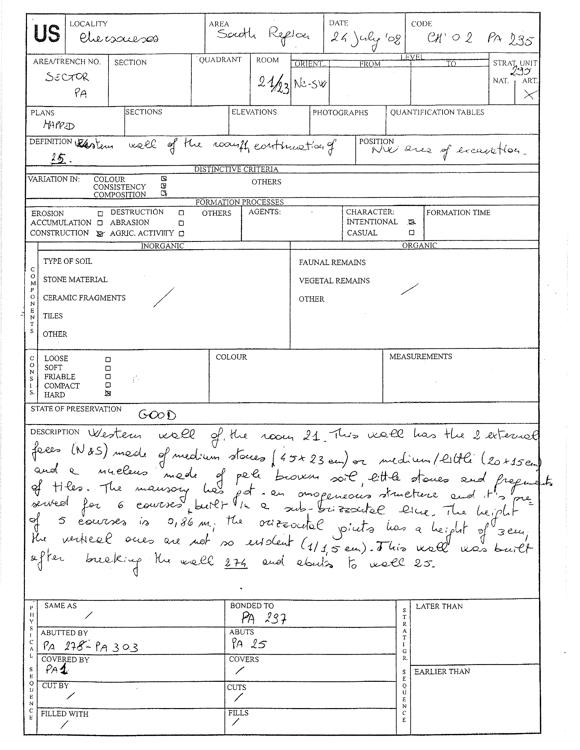 US
LOCALITY
Chersonesos
AREA
South Region
DATE
24 July '02
CODE
CH '02 PA 295
AREA/TRENCH NO.
SECTOR
PA
SECTION
QUADRANT
ROOM
21/23
LEVEL
ORIENT.
FROM
TO
NE-SW
STRAT. UNIT
295
NAT. ART.
X
PLANS
MAPPED
SECTIONS
ELEVATIONS
PHOTOGRAPHS
QUANTIFICATION TABLES
DEFINITION Western wall of the room, continuation of
25.
POSITION
NW area of excavation.
DISTINCTIVE CRITERIA
VARIATION IN: COLOUR
CONSISTENCY
COMPOSITION
OTHERS
FORMATION PROCESSES
EROSION DESTRUCTION OTHERS
ACCUMULATION ABRASION
CONSTRUCTION AGRIC. ACTIVITY
AGENTS:
CHARACTER:
INTENTIONAL
CASUAL
FORMATION TIME
COMPONENTS
INORGANIC
TYPE OF SOIL
STONE MATERIAL
CERAMIC FRAGMENTS /
TILES
OTHER
ORGANIC
FAUNAL REMAINS
VEGETAL REMAINS
OTHER /
CONSIS.
LOOSE
SOFT
FRIABLE
COMPACT
HARD
COLOUR
MEASUREMENTS
STATE OF PRESERVATION GOOD
DESCRIPTION Western wall of the room 21. This wall has the 2 external
faces (N & S) made of medium stones (45 x 23 cm) or medium/little (20 x 15 cm)
and a nucleus made of pale brown soil, little stones and fragments
of tiles. The mansory has got an omogeneous structure and it's pre-
served for 6 courses, built in a sub-orizzontal line. The height
of 5 courses is 0,86 m; the orizzontal joints has a height of 3 cm,
the vertical ones are not so evident (1/1,5 cm). This wall was built
after breaking the wall 274 and abuts to wall 25.
PHYSICAL SEQUENCE
SAME AS
/
BONDED TO
PA 297
ABUTTED BY
PA 278 - PA 303
ABUTS
PA 25
COVERED BY
PA 1
COVERS
/
CUT BY
/
CUTS
/
FILLED WITH
/
FILLS
/
STRATIGR. SEQUENCE
LATER THAN
EARLIER THAN